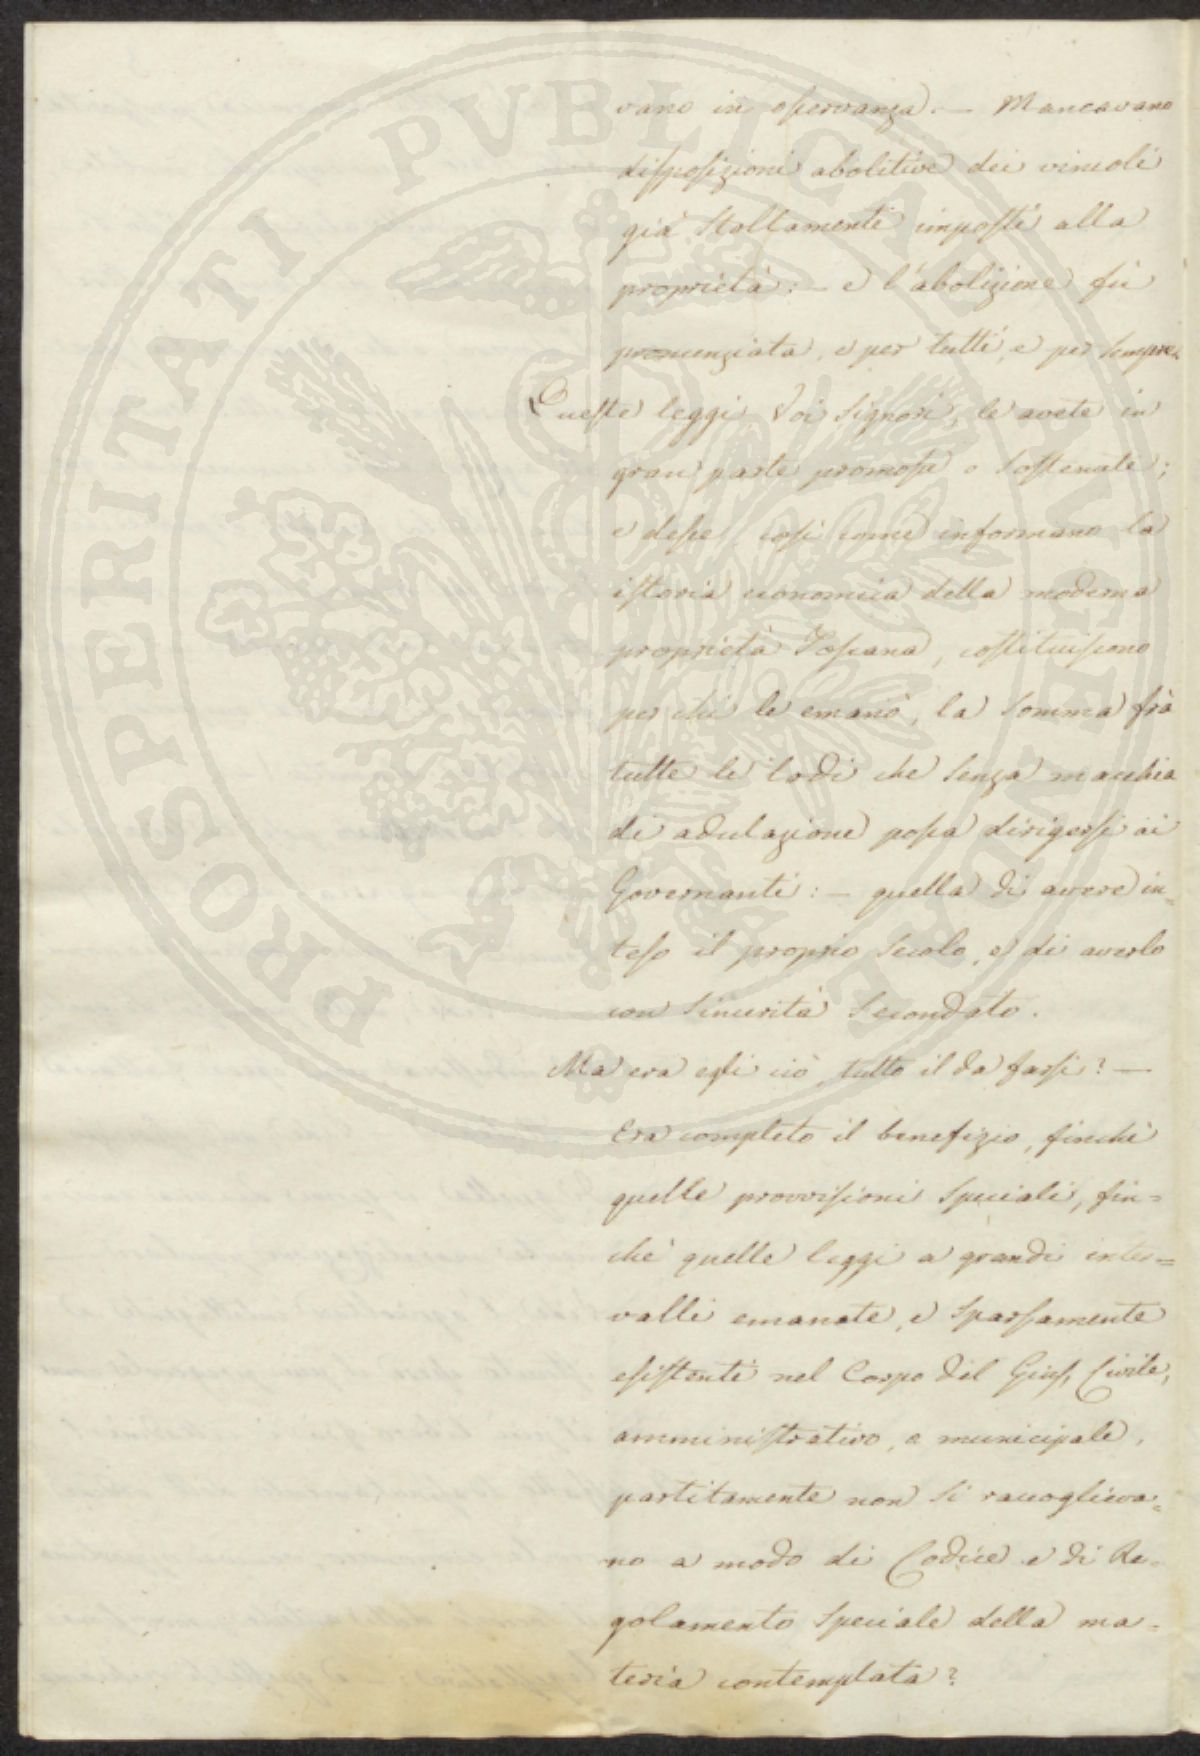 vano in osservanza. — Mancavano
disposizioni abolitive dei vincoli
già stoltamente imposti alla
proprietà: — e l'abolizione fù
pronunziata, e per tutti, e per sempre.
Queste leggi Voi Signori, le avete in
gran parte promosse o sostenute;
e desse, così come informano la
istoria economica della moderna
proprietà Toscana, costituiscono
per chi le emanò, la somma frà
tutte le lodi che senza macchia
di adulazione possa dirigersi ai
Governanti: — quella di avere in=
teso il proprio secolo, e di averlo
con sincerità secondato.
Ma era egli ciò tutto il da farsi? —
Era completo il benefizio, finchè
quelle provvisioni speciali, fin=
chè quelle leggi a grandi inter=
valli emanate, e sparsamente
esistenti nel Corpo del Gius Civile,
amministrativo, e municipale,
partitamente non si raccoglieva=
no a modo di Codice e di Re=
golamento speciale della ma=
teria contemplata?
PROSPERITATI PVBLICAE AVGENDAE